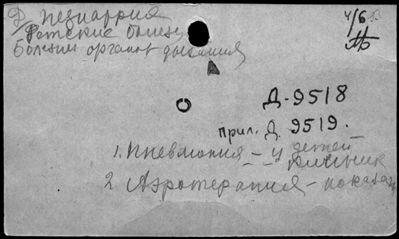 Д/ педиатрия
Детские болезн
болезни органов дыхания
4/6
Д-9518
прил. Д 9519.
1. Пневмония – у детей
2 Аэротерапия – показан